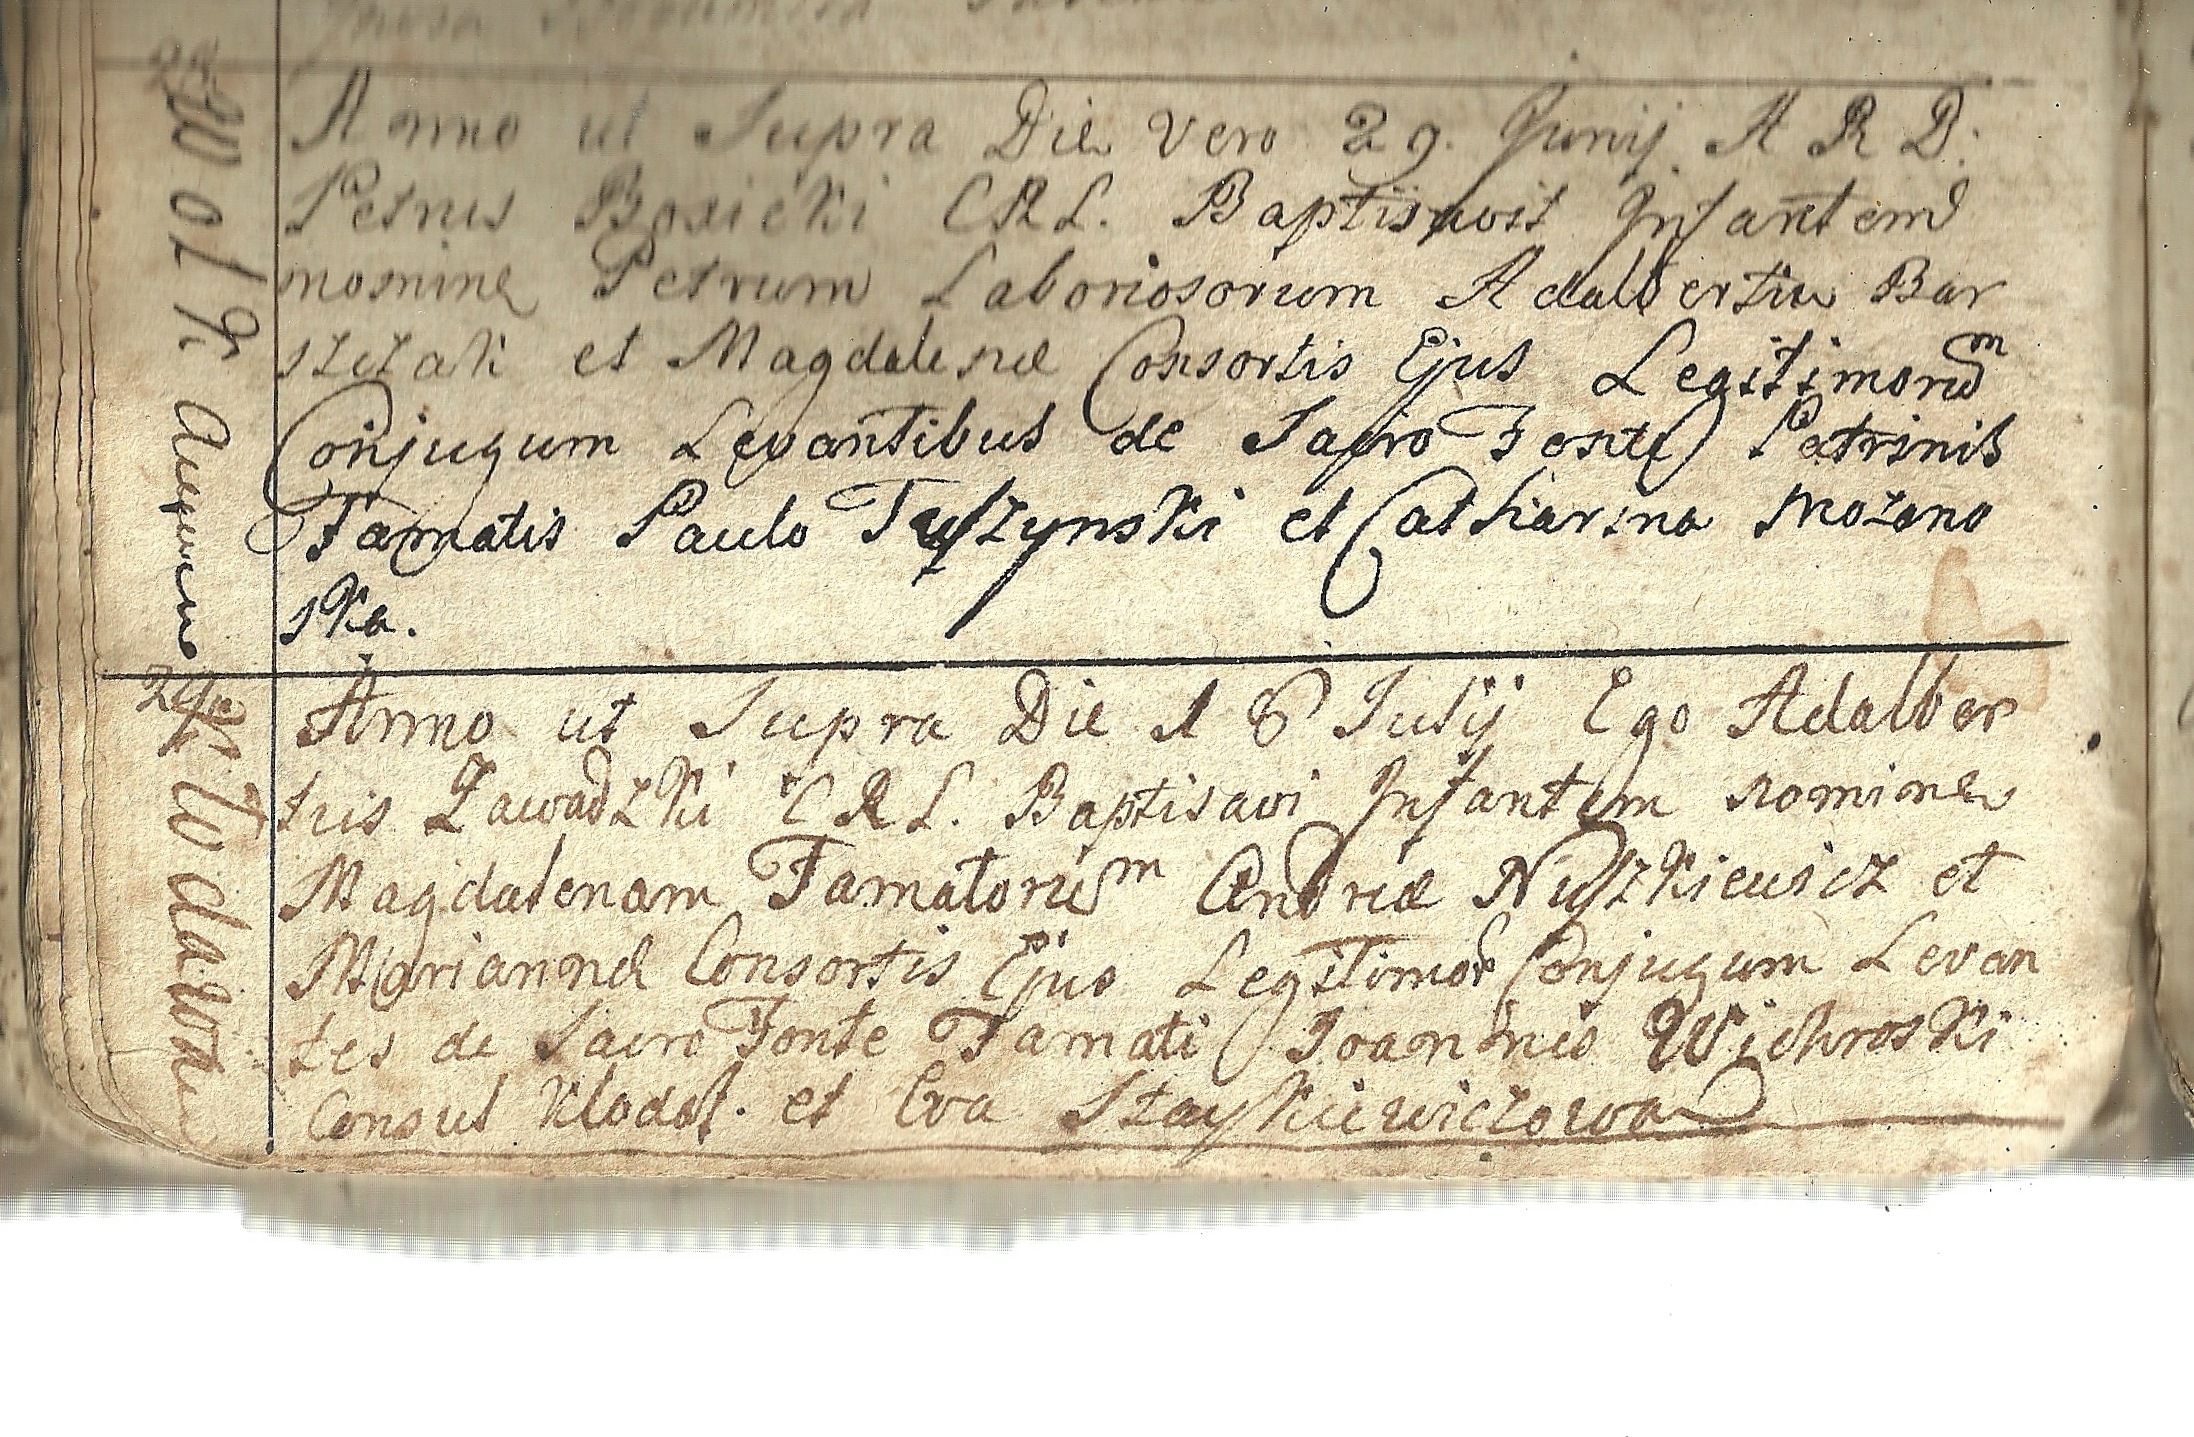 Anno ut Supra Die vero 29. Junij A R D.
Petrus CRL. Baptisavit Infantem
nomine Petrum Laboriosorum Adalberti Bar
szczak et Magdalenæ Consortis Ejus Legitimorum
Conjugum Levantibus de Sacro Fonte Patrinis
Famatis Paulo Tuszynski et Catharina Mozano
ska.
Anno ut Supra Die 18 Julij Ego Adalber
tus Zawadzki CRL. Baptisavi Infantem nomine
Magdalenam Famatorum Andreæ Nuszkiewicz et
Mariannæ Consortis Ejus Legitimor Conjugum Levan
tes de Sacro Fonte Famati Joannes Wichroski
Consul Klodat. et Eva Szaykiewiczowa